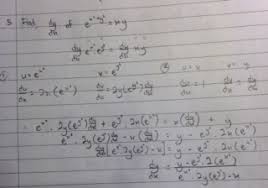 5. Find dy/dx of e^(x²+y²) = xy
dy/dx e^(x²) . e^(y²) = dy/dx xy
① u = e^(x²) v = e^(y²) ② u = x v = y
du/dx = 2x(e^(x²)) dv/dx = 2y(e^(y²)) dy/dx du/dx = 1 dv/dx = dy/dx
= e^(x²) . 2y(e^(y²)) dy/dx + e^(y²) . 2x(e^(x²)) = x(dy/dx) + y
e^(x²) . 2y(e^(y²)) dy/dx - x(dy/dx) = y - e^(y²) . 2x(e^(x²))
dy/dx [e^(x²) . 2y(e^(y²)) - x] = y - e^(y²) . 2x(e^(x²))
dy/dx = y - e^(y²) . 2x(e^(x²)) / e^(x²) . 2y(e^(y²)) - x